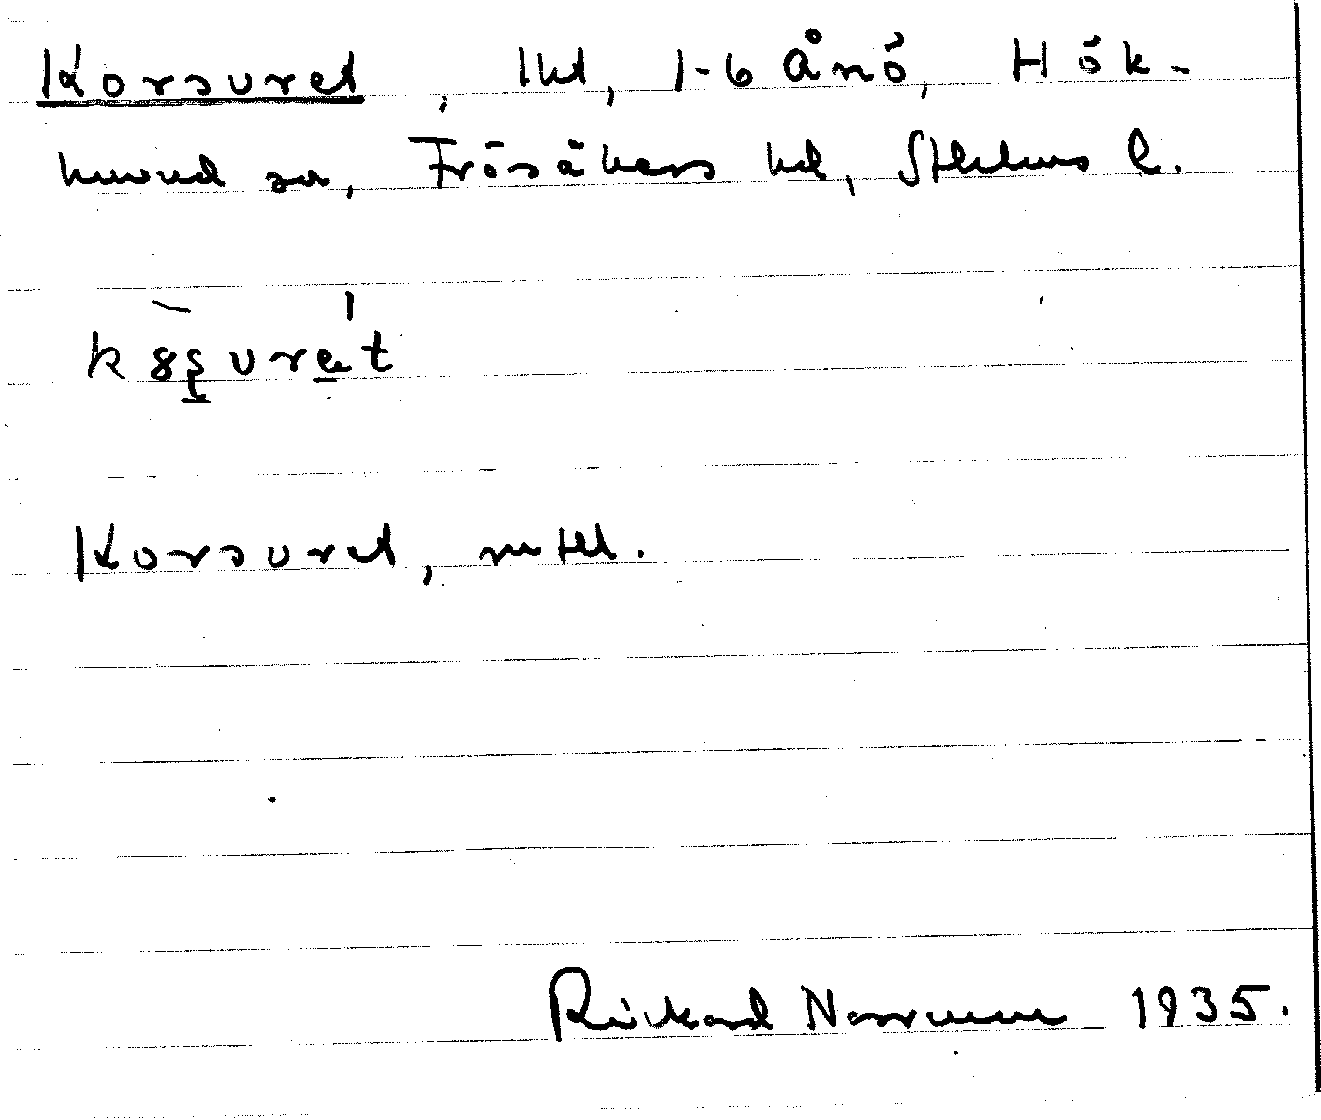 Korsuret, lht, 1-6 Ånö, Hök-
huvud sn, Frösåkers hd, Sthlms l.
Korsuret, mtbl.
Rickard Norrman 1935.